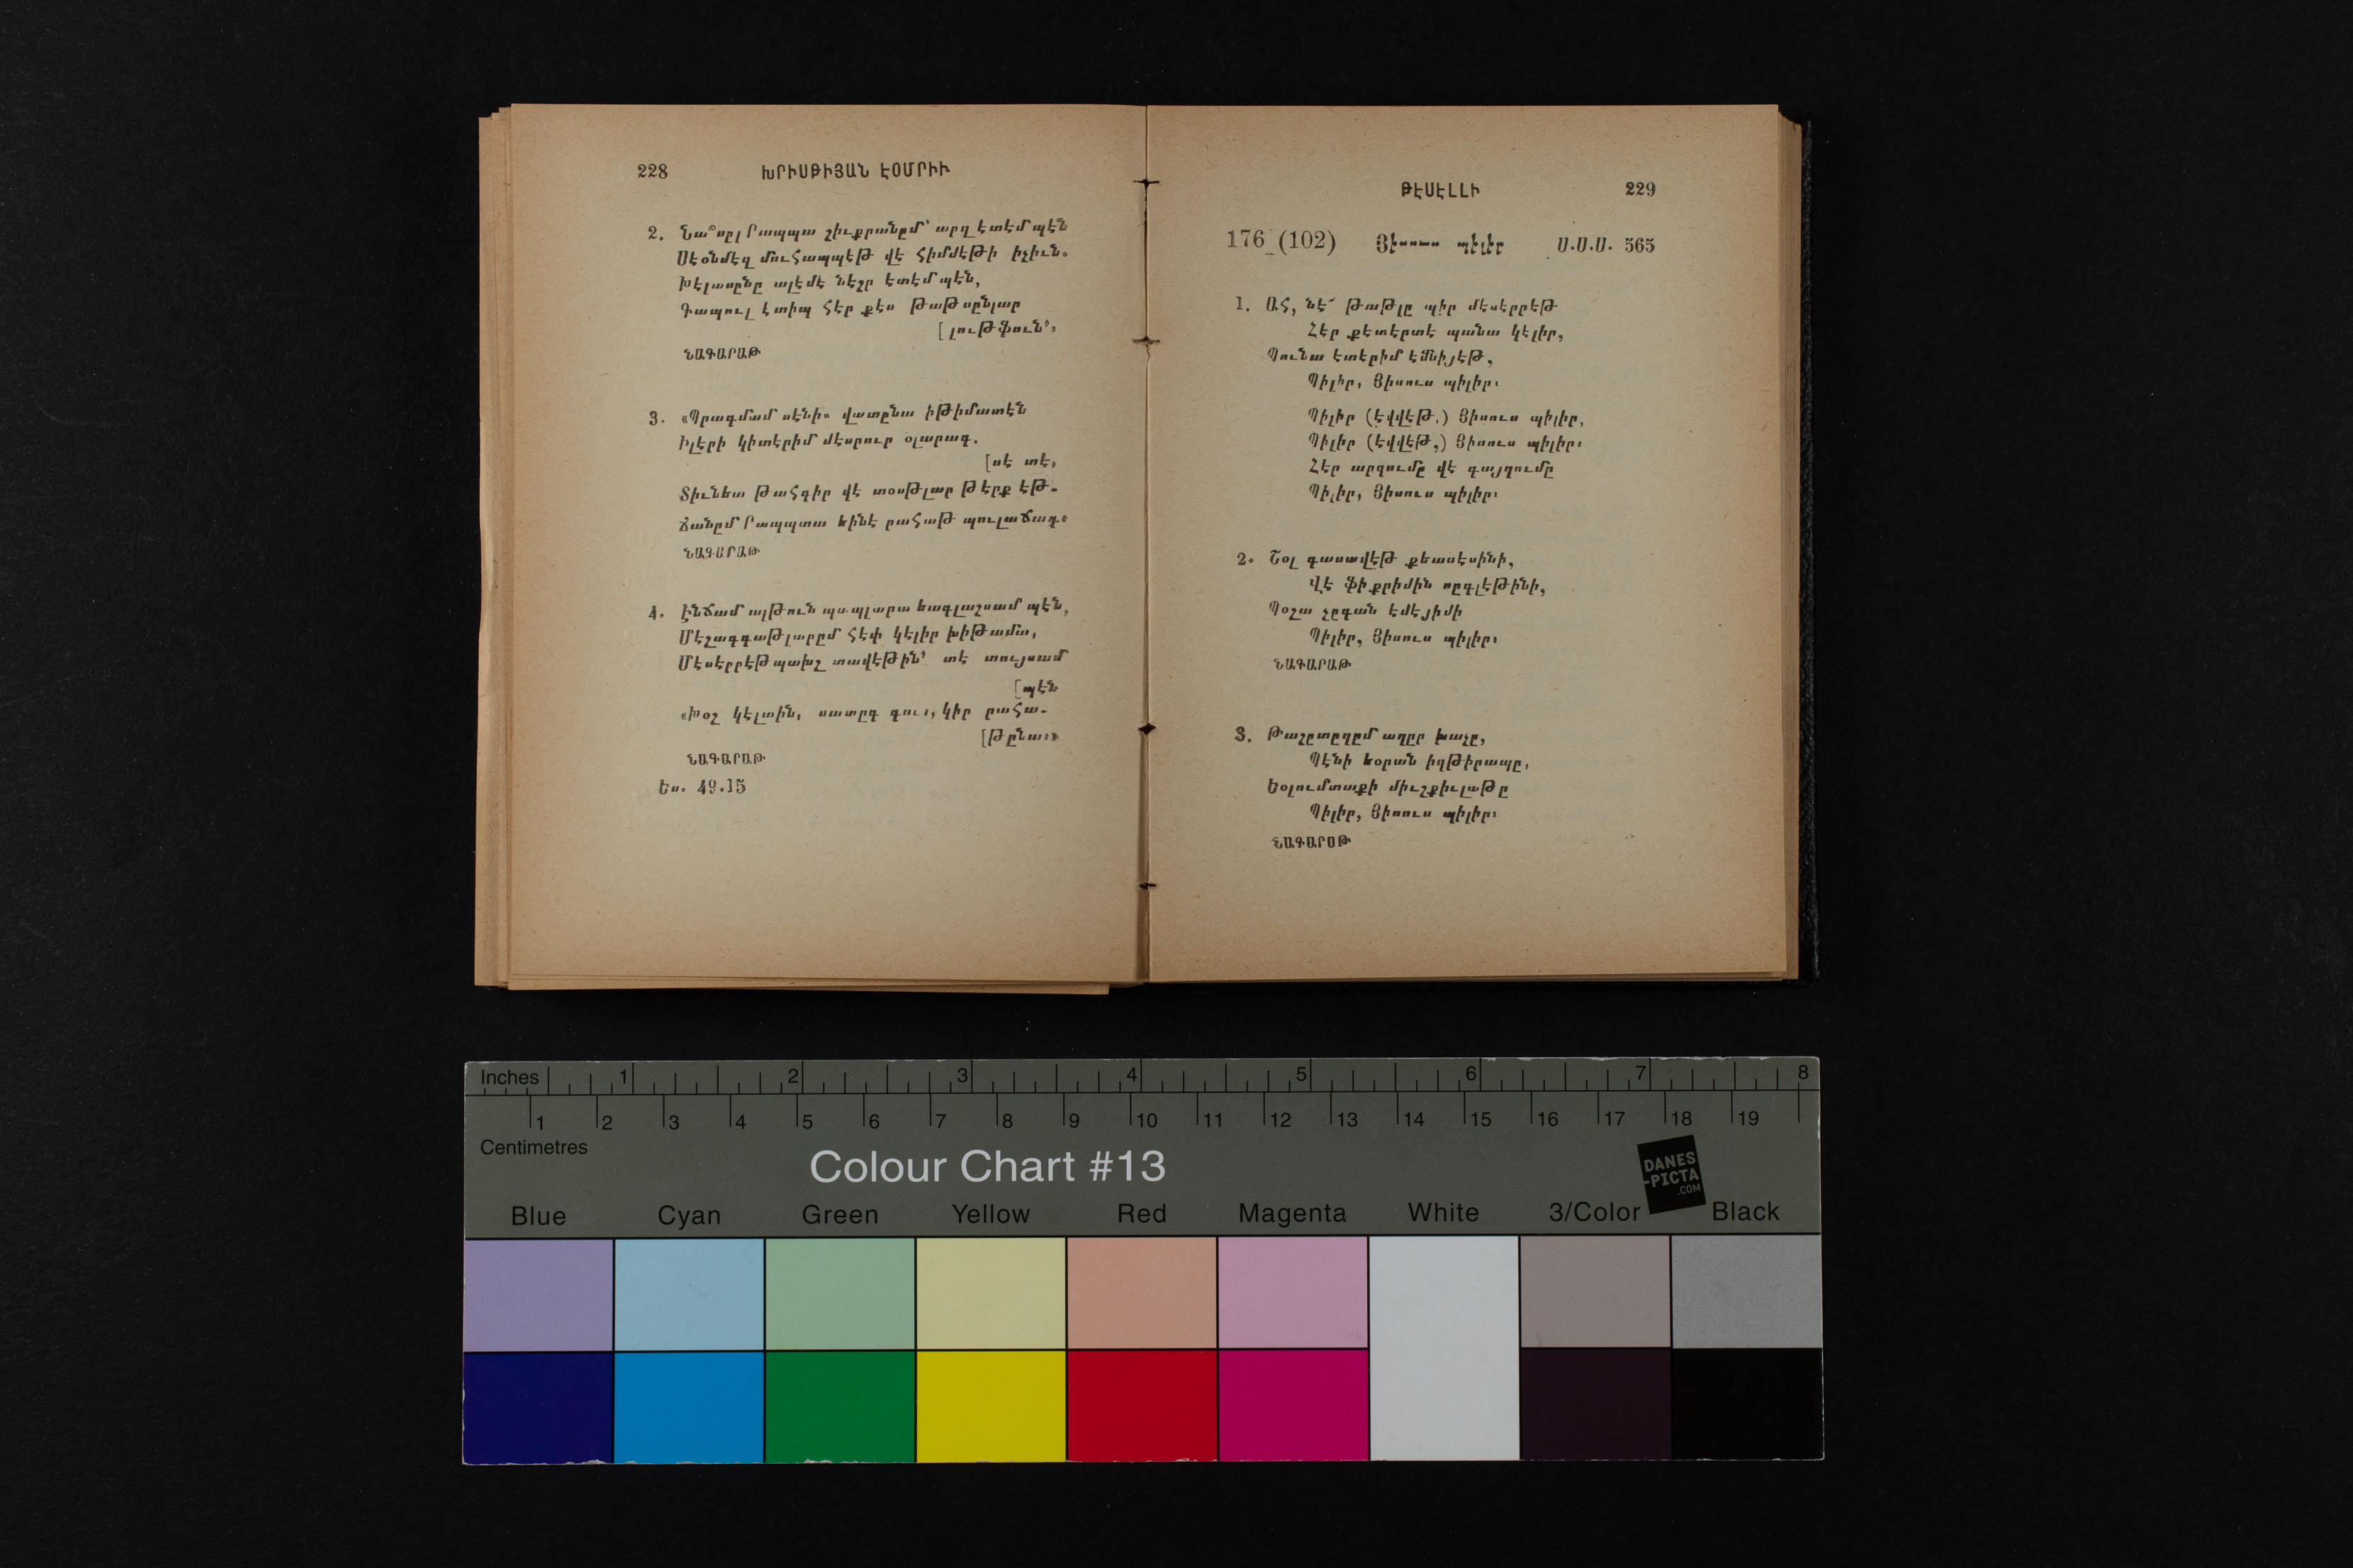 228 ԽՐԻՍԹԻՅԱՆ ԷՕՄՐԻՒ
2. Նա՞սըլ Րապպա շիւքրանըմ՝ արզ էտէմ պէն
Սէօնմէզ մուհապպէթ վէ հիմմէթի իչիւն։
Խէլասընը ալէմէ նէշր էտէմ պէն,
Գապուլ էտիպ հէր քէս թաթսընլար
[լութֆուն՝։
ՆԱԳԱՐԱԹ
3. «Պրագմամ սէնի» վատընա իթիմատէն
Իլէրի կիտէրիմ մէսրուր օլարագ.
[սէ տէ,
Տիւնեա թահգիր վէ տօսթլար թէրք էթ-
Ճանըմ Րապպտա եինէ րահաթ պուլաճաղ։
ՆԱԳԱՐԱԹ
4. Ինճամ ալթուն պապլարա եագլաշսամ պէն,
Մէշագգաթլարըմ հէփ կէլիր խիթամա,
Մէսէրրէթ պախշ տավէթին՝ տէ տույսամ
[պէն
«Խօշ կէլտին, սատըգ գուլ, կիր րահա-
[թընա։»
ՆԱԳԱՐԱԹ
Ես. 49.15
ԹԷՍԷԼԼԻ 229
176 (102) Յիսուս պիլիր Ս.Ս.Ս. 565
1. Ահ, նէ՜ թաթլը պիր մէսէրրէթ
Հէր քետէրտէ պանա կէլիր,
Պունա էտէրիմ էմնիյէթ,
Պիլիր, Յիսուս պիլիր։
Պիլիր (էվվէթ,) Յիսուս պիլիր,
Պիլիր (էվվէթ,) Յիսուս պիլիր։
Հէր արզումը վէ գայղումը
Պիլիր, Յիսուս պիլիր։
2. Շօլ գասավէթ քեասէսինի,
Վէ ֆիքրիմին սըգլէթինի,
Պօշա չըգան էմէյիմի
Պիլիր, Յիսուս պիլիր։
ՆԱԳԱՐԱԹ
3. Թաշըտըղըմ աղըր խաչը,
Պէնի եօրան իզթիրապը,
Եօլումտաքի միւշքիւլաթը
Պիլիր, Յիսուս պիլիր։
ՆԱԳԱՐԱԹ
Inches 1 2 3 4 5 6 7 8
1 2 3 4 5 6 7 8 9 10 11 12 13 14 15 16 17 18 19
Centimetres
Colour Chart #13
DANES
-PICTA
.COM
Blue Cyan Green Yellow Red Magenta White 3/Color Black